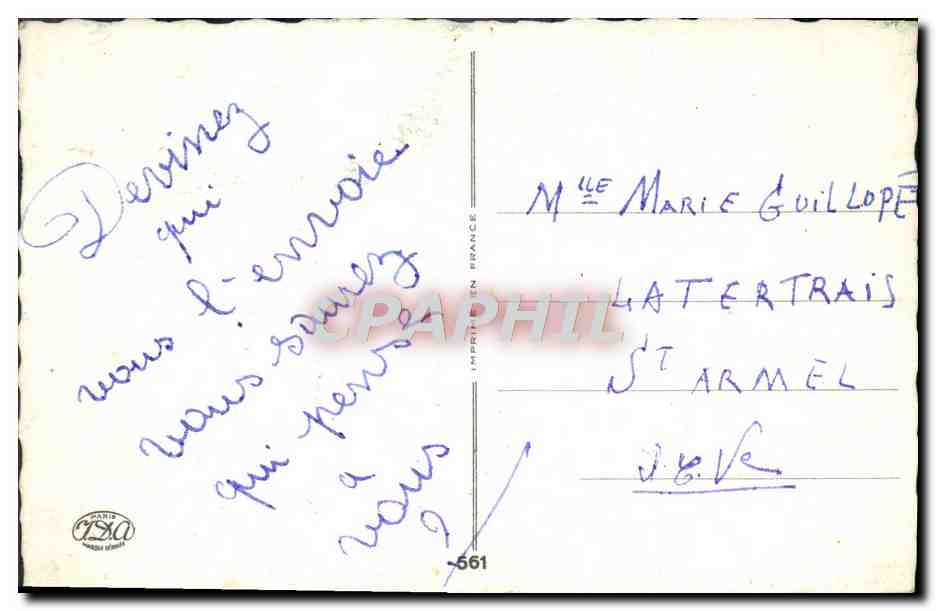 Devinez
qui
vous l'envoie
vous saurez
qui pense
à
vous
?
Mlle MARIE GUILLOPÉ
LATERTRAIS
St ARMEL
I. & Ve
IMPRIMÉ EN FRANCE
CPAPHIL
PARIS
I.D.A
MARQUE DÉPOSÉE
561